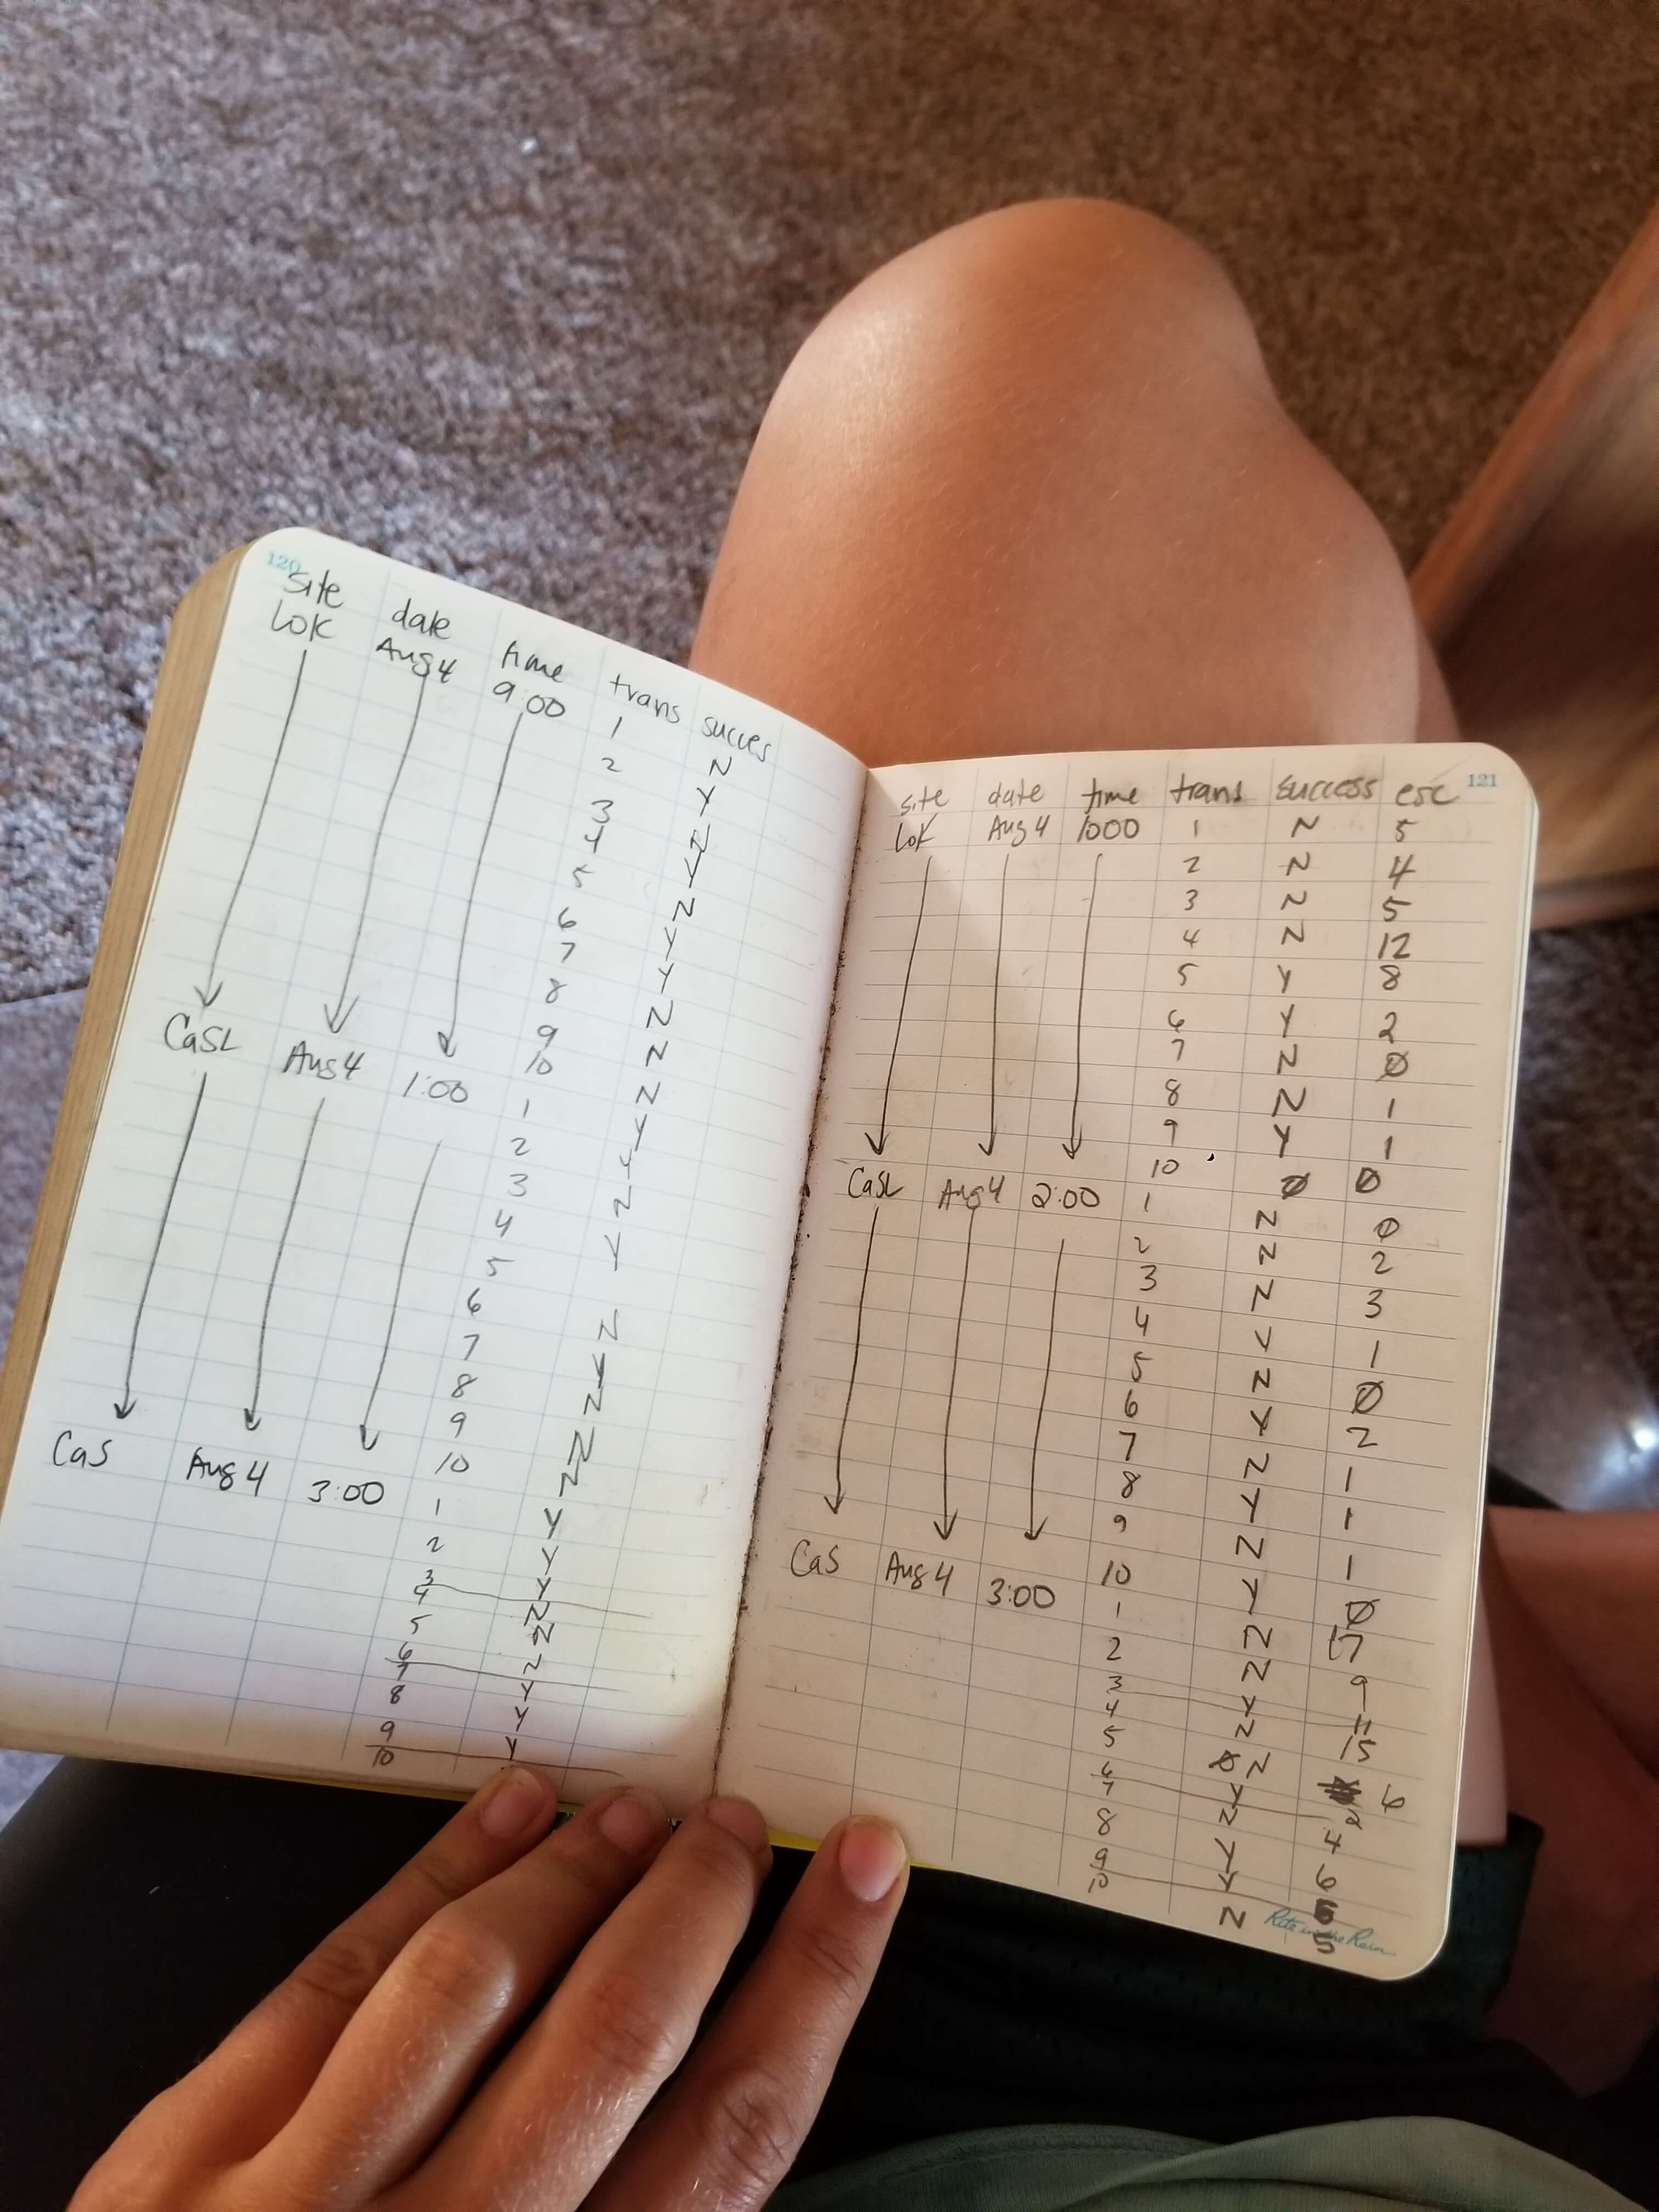 120
site date time trans succes
Lok Aug 4 9:00 1 N
2 Y
3 N
4 Y
5 N
6 Y
7 Y
8 N
9 N
10 N
CasL Aug 4 1:00 1 Y
2 Y
3 N
4 Y
5
6 N
7 Y
8 N
9 N
10 N
Cas Aug 4 3:00 1 Y
2 Y
3 Y
4 N
5 N
6 N
7 Y
8 Y
9 Y
10
121
site date time trans success esc
Lok Aug 4 1000 1 N 5
2 N 4
3 N 5
4 N 12
5 Y 8
6 Y 2
7 N Ø
8 N 1
9 Y 1
10 Ø Ø
CasL Aug 4 2:00 1 N Ø
2 N 2
3 N 3
4 Y 1
5 N Ø
6 Y 2
7 N 1
8 Y 1
9 N 1
10 Y Ø
Cas Aug 4 3:00 1 N
2 N 9
3 Y 11
4 N 15
5 N 6
6 Y 2
7 N 4
8 Y 6
9 Y
10 N 5
Rite in the Rain